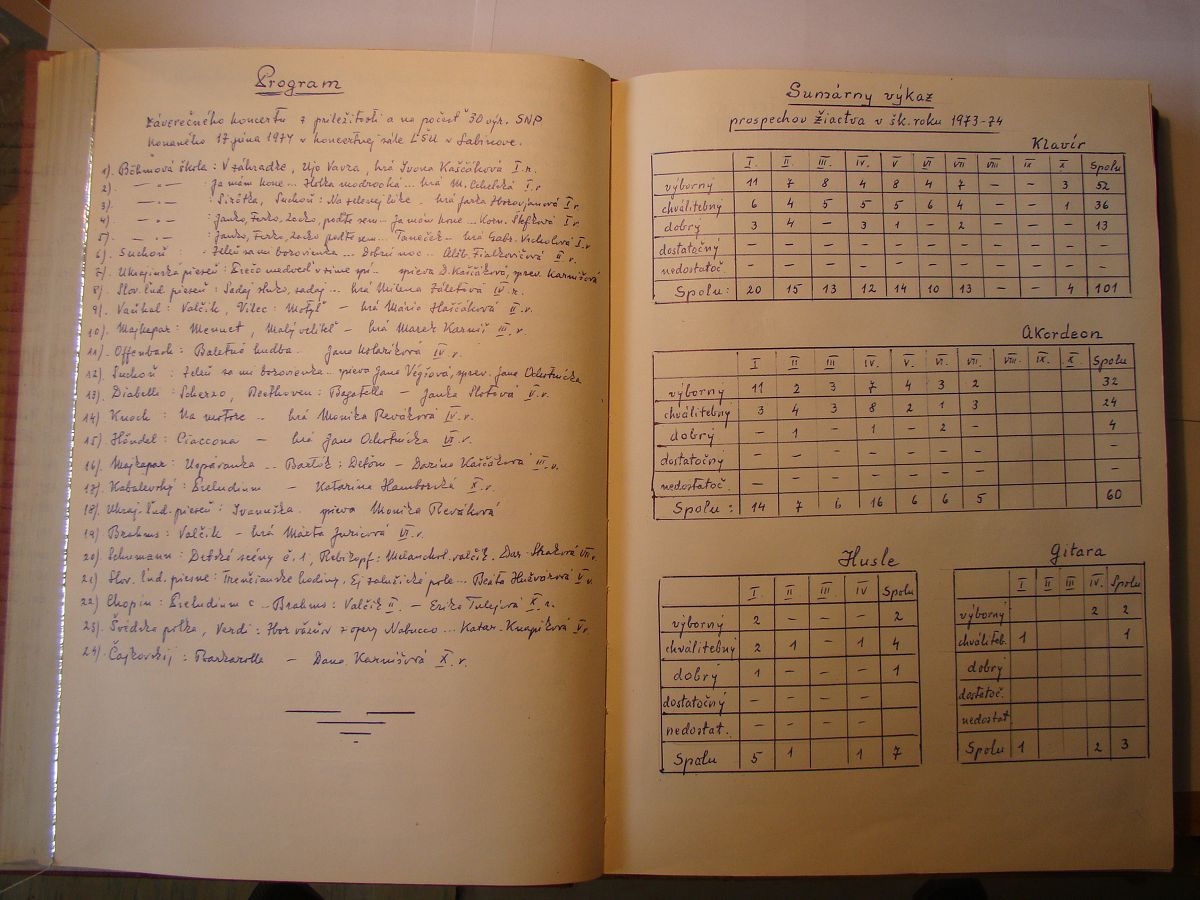 Program
záverečného koncertu z príležitosti a na počesť 30 výr. SNP
konaného 17 júna 1974 v koncertnej sále LŠU v Sabinove.
1). Böhmová škola: V záhradke, Ujo Vavra, hrá Ivona Kaščáková I. r.
2). — " — : Ja mám kone... Holka modrooká... hrá M. I. r
3). — " — : Sirôtka, Suchoň: Na zelenej lúke. hrá Jarka I r.
4). — " — : Janko, Ferko, Jožko, poďte sem.. Ja mám kone... Korn. Šefková I r.
5). — " — : Janko, Ferko, Jožko poďte sem... Tanečok — hrá Gabr. Vrcholová I. r
6). Suchoň : Zeleň sa mi borovienka... Dobrú noc.. Alžb. Fialkovičová II. r.
7). Ukrajinská pieseň: Prečo medveď v zime spí — spieva D. Kaščáková, sprev. Karnišová
8). Slov. ľud. pieseň: Sadaj slnko, sadaj... hrá Milena Záletová IV. r.
9). Vaňhal: Valčík, Vilec: Motýľ — hrá Mária Haščáková II. r.
10). Majkapar: Menuet, Malý veliteľ — hrá Marek Karniš III. r.
11). Offenbach: Baletná hudba.. Jana Kolariková IV r.
12). Suchoň: Zeleň sa mi borovienka.. spieva Jana Végsová, sprev. Jana Ochotnícka
13). Diabelli: Scherzo, Beethoven: Bagatella — Janka Slotová V. r.
14). Knoch: Na motore .. hrá Monika Reváková IV. r.
15). Händel: Ciaccona — hrá Jana Ochotnícka VI. r.
16). Majkapar: Uspávanka .. Bartók: Deťom — Darina Kaščáková III. r.
17). Kabalevský: Prelúdium — Katarína Hamborská X. r.
18). Ukraj. ľud. pieseň: Ivanuška. spieva Monika Reváková
19). Brahms: Valčík — hrá Márta Juricová VI. r.
20). Schumann: Detské scény č. 1, Rebikov: Melanchol. valčík. Dar. Straková VII r.
21). Slov. ľud. piesne: Trenčianske hodiny, Ej zalužické pole... Beáta Hužvárová V r.
22). Chopin: Prelúdium c .. Brahms: Valčík II — Erika Tulejová X. r.
23). Švédska polka, Verdi: Zbor väzňov z opery Nabucco... Katar. Knapíková V r.
24). Čajkovskij: Barkarolla — Dana Karnišová X. r.
Sumárny výkaz
prospechov žiactva v šk. roku 1973-74
Klavír
I. II III. IV. V VI. VII VIII IX X Spolu
výborný 11 7 8 4 8 4 7 — — 3 52
chválitebný 6 4 5 5 5 6 4 — — 1 36
dobrý 3 4 — 3 1 — 2 — — — 13
dostatočný — — — — — — — — — — —
nedostatoč. — — — — — — — — — — —
Spolu: 20 15 13 12 14 10 13 — — 4 101
Akordeon
I II III IV. V. VI. VII. VIII. IX. X Spolu
výborný 11 2 3 7 4 3 2 32
chválitebný 3 4 3 8 2 1 3 24
dobrý — 1 — 1 — 2 — 4
dostatočný — — — — — — — —
nedostatoč. — — — — — — — —
Spolu: 14 7 6 16 6 6 5 60
Husle
I. II III. IV Spolu
výborný 2 — — — 2
chválitebný 2 1 — 1 4
dobrý 1 — — — 1
dostatočný — — — —
nedostat. — — — —
Spolu 5 1 1 7
Gitara
I II III IV. Spolu
výborný 2 2
chváliteb. 1 1
dobrý
dostatoč.
nedostat.
Spolu 1 2 3